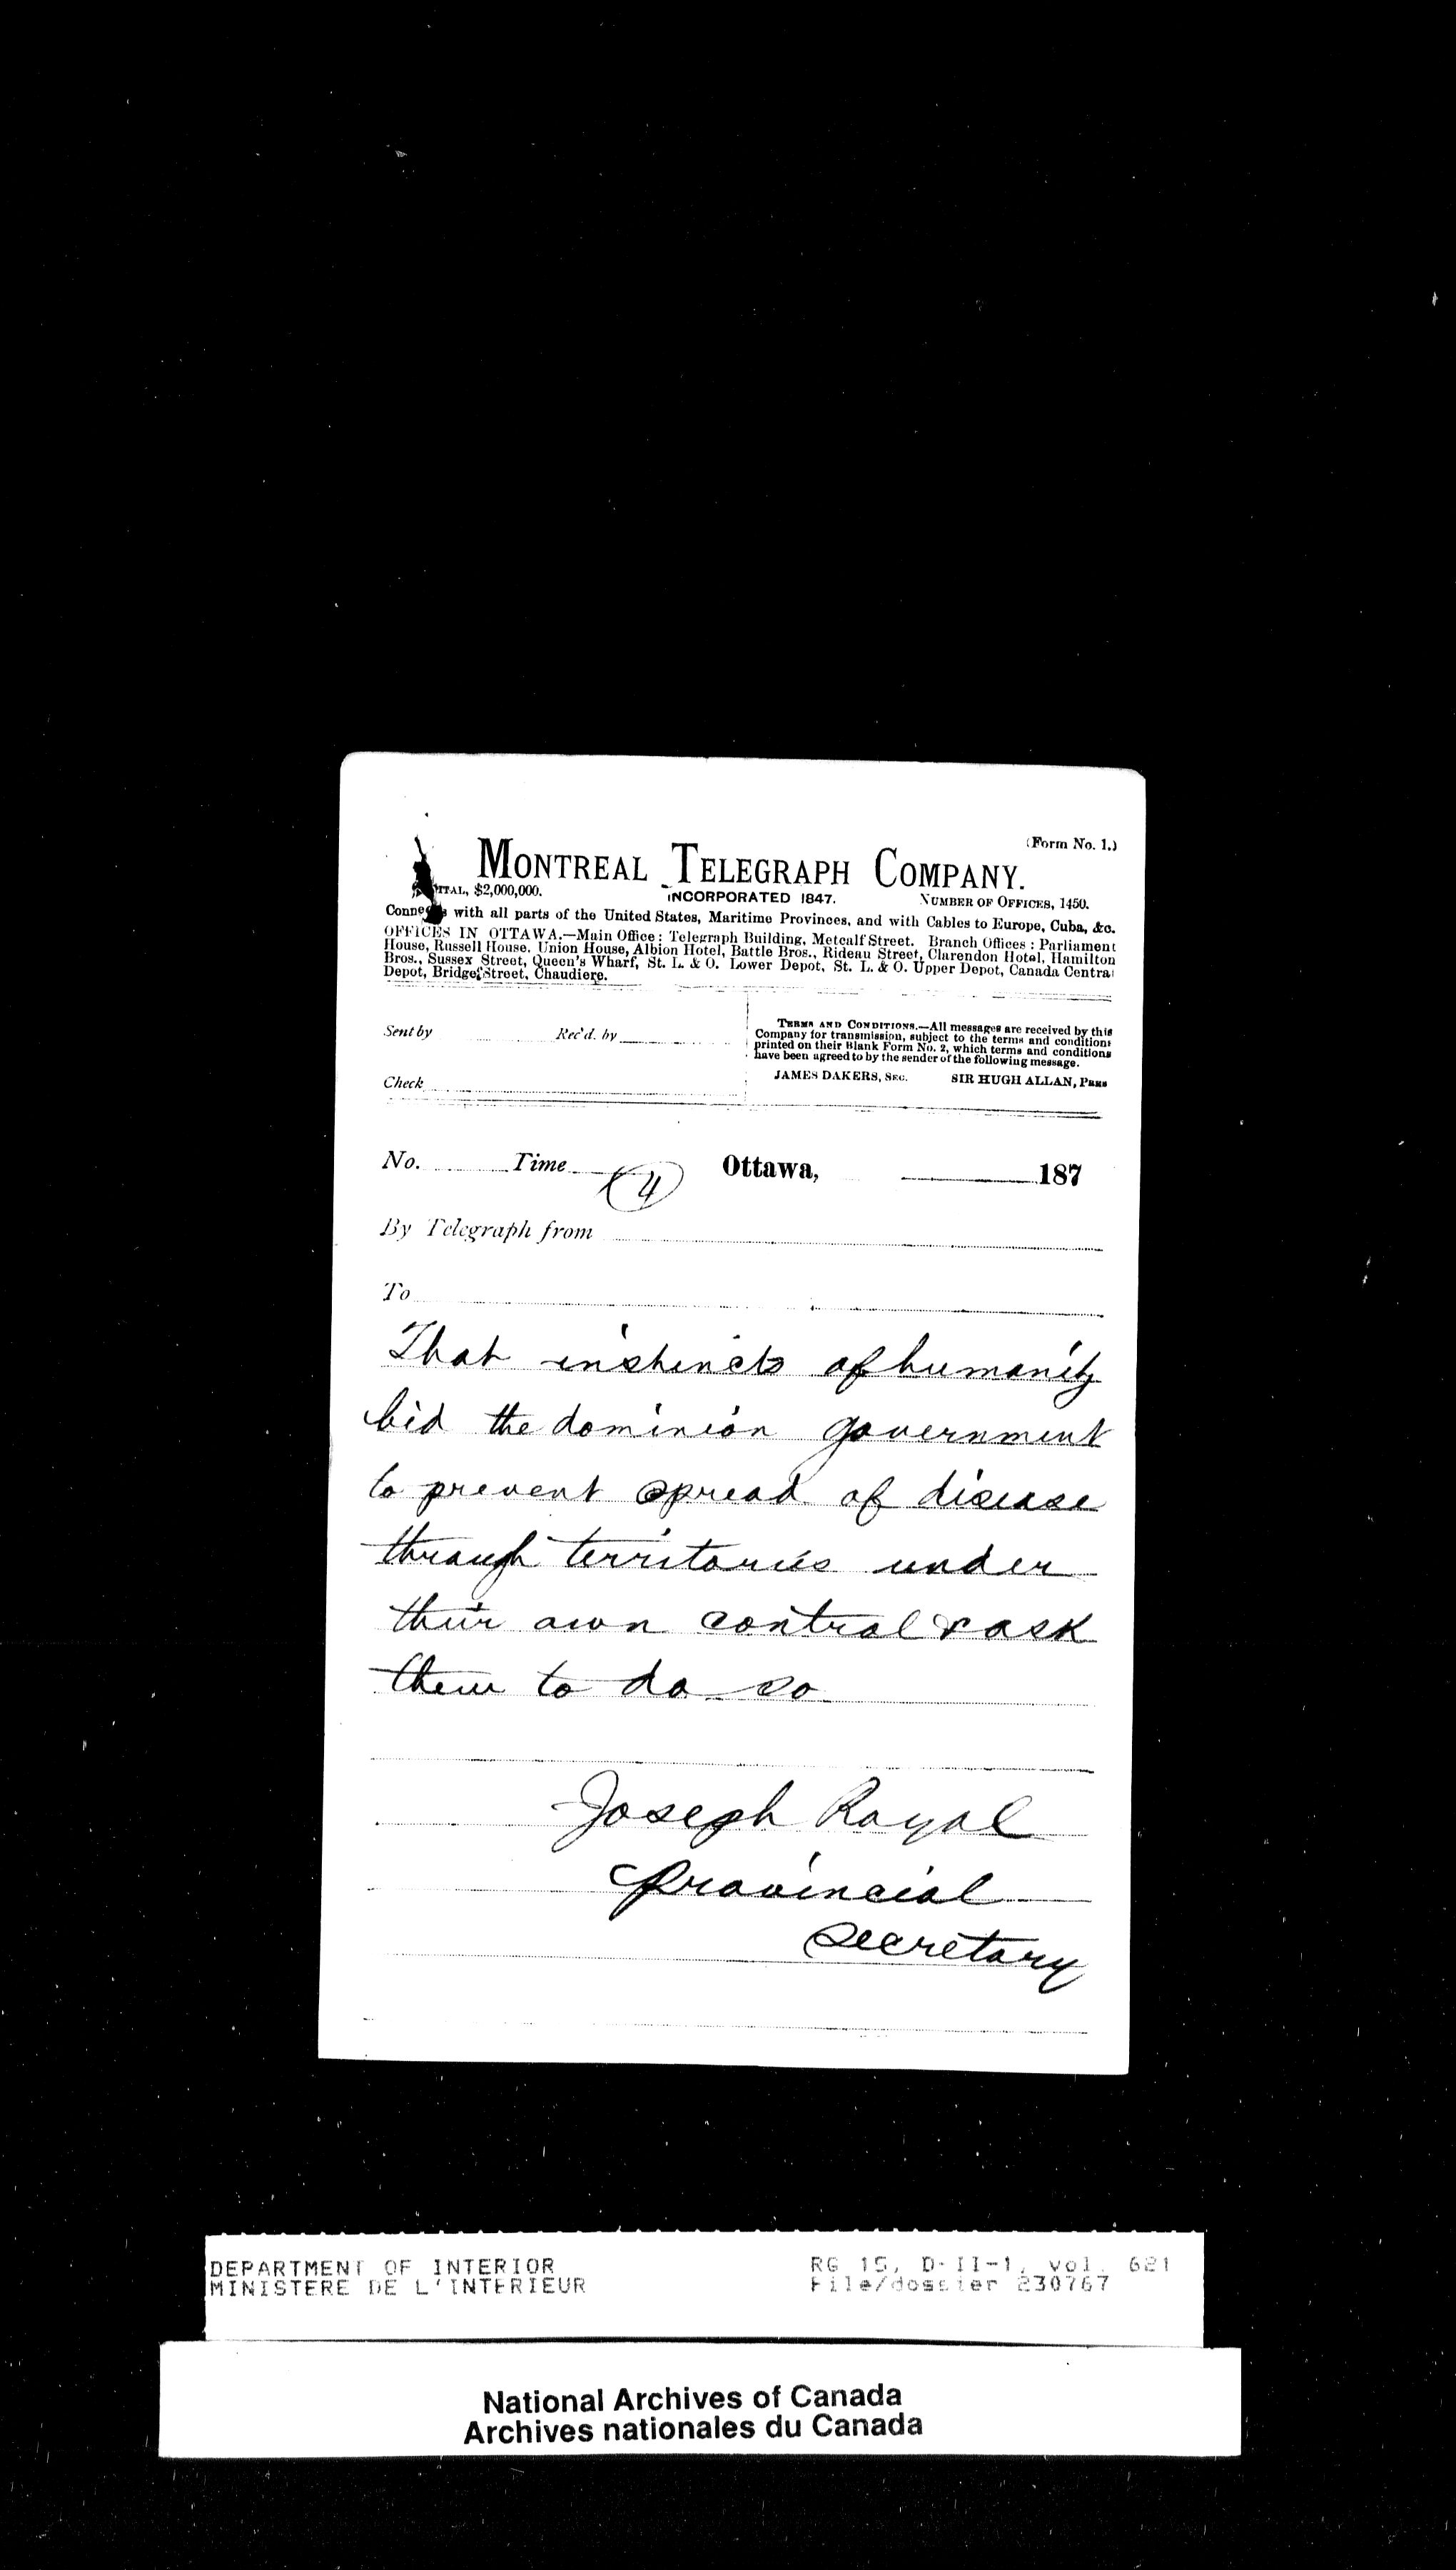 (Form No. 1.)
MONTREAL TELEGRAPH COMPANY.
$2,000,000. INCORPORATED 1847. NUMBER OF OFFICES, 1450.
with all parts of the United States, Maritime Provinces, and with Cables to Europe, Cuba, &c.
OFFICES IN OTTAWA.—Main Office: Telegraph Building, Metcalf Street. Branch Offices: Parliament
House, Russell House, Union House, Albion Hotel, Battle Bros., Rideau Street, Clarendon Hotel, Hamilton
Bros., Sussex Street, Queen's Wharf, St. L. & O. Lower Depot, St. L. & O. Upper Depot, Canada Central
Depot, Bridge Street, Chaudiere.
Sent by Rec'd. by
Check
TERMS AND CONDITIONS.—All messages are received by this
Company for transmission, subject to the terms and conditions
printed on their Blank Form No. 2, which terms and conditions
have been agreed to by the sender of the following message.
JAMES DAKERS, SEC. SIR HUGH ALLAN, PRES
No. Time (4) Ottawa, 187
By Telegraph from
To
That instincts of humanity
bid the dominion government
to prevent spread of disease
through territories under
their own control & ask
them to do so
Joseph Royal
Provincial
Secretary
DEPARTMENT OF INTERIOR RG 15, D-II-1, vol. 621
MINISTERE DE L'INTERIEUR File/dossier 230767
National Archives of Canada
Archives nationales du Canada